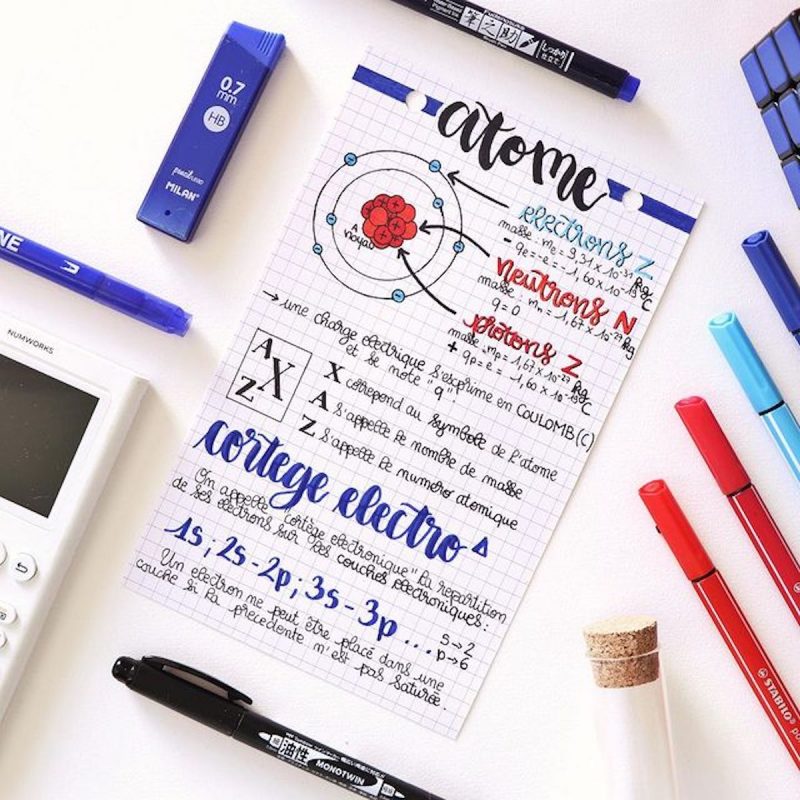 筆之助
しっかり仕立て
0.7
mm
HB
MILAN
atome
électrons Z
masse : me = 9,31 x 10⁻³¹ kg
- qe = -e = -1,60 x 10⁻¹⁹ C
neutrons N
masse : mn = 1,67 x 10⁻²⁷ kg
q = 0
protons Z
masse : mp = 1,67 x 10⁻²⁷ kg
+ qp = e = -1,60 x 10⁻¹⁹ C
noyau
→ une charge électrique s'exprime en COULOMB (C)
et se note "q"
A
Z X
X correpond au symbole de l'atome
A s'appelle le nombre de masse
Z s'appelle le numéro atomique
cortège électro
On appelle "cortège électronique" la répartition
de ses électrons sur les couches électroniques :
1s ; 2s - 2p ; 3s - 3p ...
s → 2
p → 6
Un électron ne peut être placé dans une
couche si la précédente n'est pas saturée.
NUMWORKS
油性
MONOTWIN
STABILO